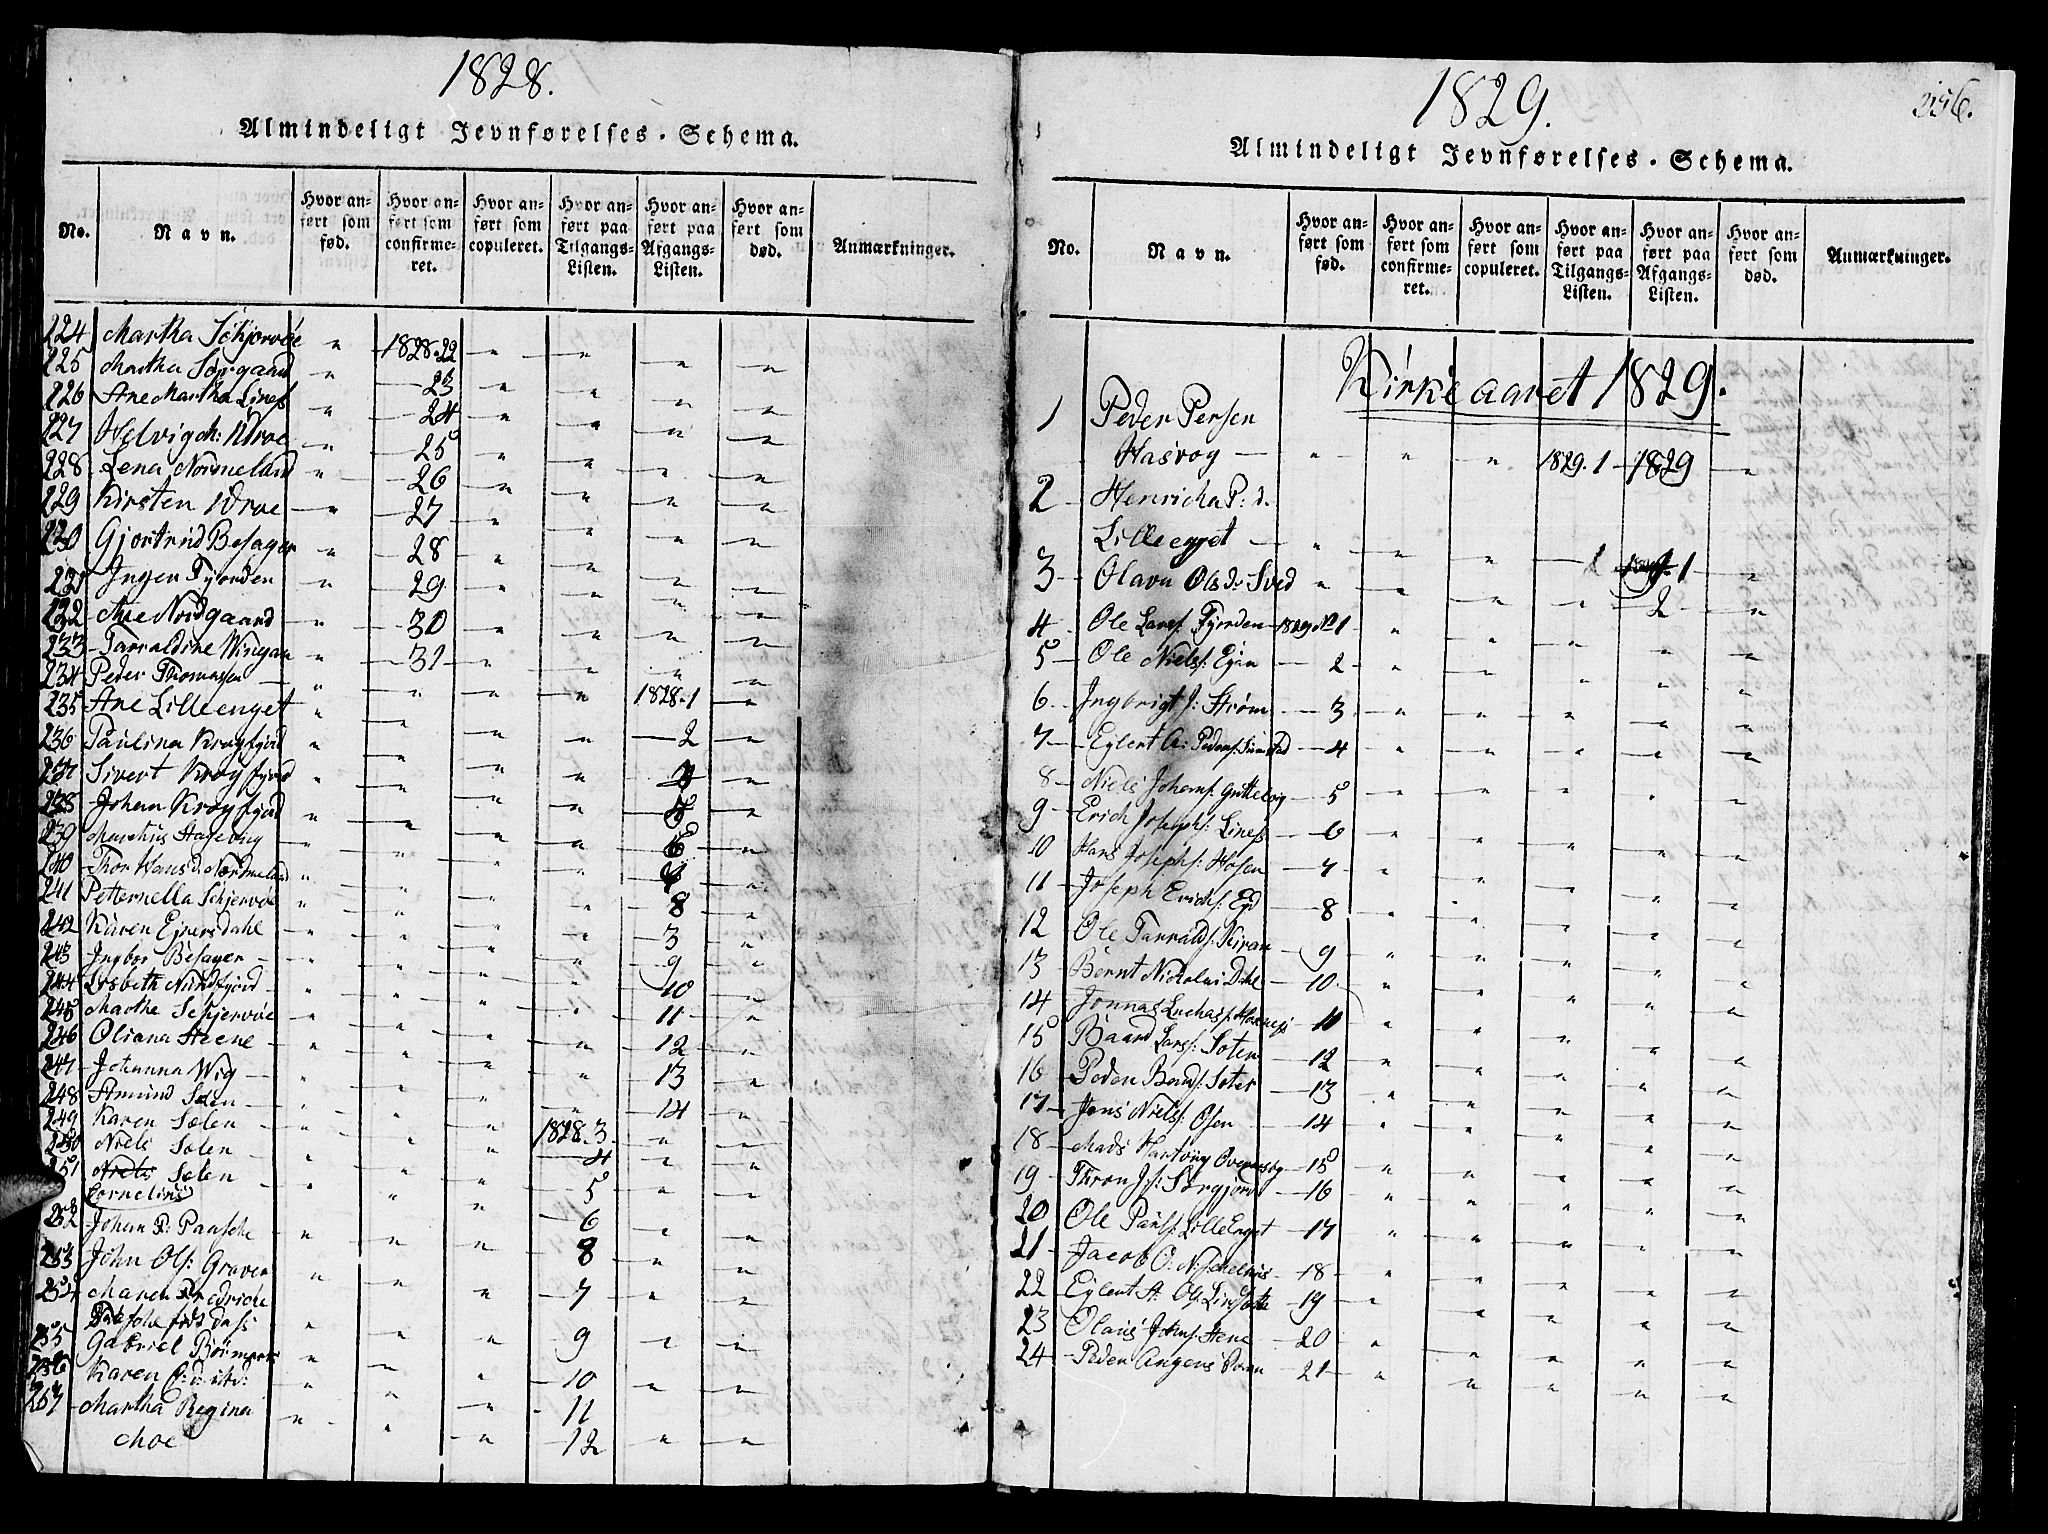 1828.
Almindeligt Jevnførelses-Schema.
No.
Navn.
Hvor anført som fød.
Hvor anført som confirmeret.
Hvor anført som copuleret.
Hvor anført paa Tilgangs-Listen.
Hvor anført paa Afgangs-Listen.
Hvor anført som død.
Anmærkninger.
224 Martha Schjervøe " 1828.22 " " " "
225 Martha Sørgaard " 23 " " " "
226 Ane Martha Lines " 24 " " " "
227 Helvig Kiroe " 25 " " " "
228 Lena Normeland " 26 " " " "
229 Kirsten " 27 " " " "
230 Gjertrud Besager " 28 " " " "
231 Ingen Fjorden " 29 " " " "
232 Ane Nordgaard " 30 " " " "
233 Tarraldine Wingan " 31 " " " "
234 Peder Thomassen " " " " 1828.1 "
235 Ane Lilleenget " " " " 2 "
236 Paulina Krogfjord " " " "
237 Sivert Krogfjord " " " "
238 Johan Krogfjord " " " " 6 "
239 " " " "
240 Thor Hans d. Normeland " " " " 8 "
241 Petternella Schjervøe " " " " 3 "
242 Karen Ejnersdahl " " " " 9 "
243 Ingbor Besager " " " " 10 "
244 Lisbeth Nordfjord " " " " 11 "
245 Marthe Schjervøe " " " " 12 "
246 Oliana Steene " " " " 13 "
247 Johanna Wig " " " " 14 "
248 Amund Solen " " " 1828.3 " "
249 Karen Solen " " " 4 " "
250 Niels Solen " " " 5 " "
251 Niels Solen " " " 6 " "
Cornelius
252 Johan P: Paasche " " " 8 " "
253 John Ols: Graven " " " 7 " "
254 Maren Fredriche " " " 9 " "
Paasche født Dass
255 Gabriel " " " 10 " "
256 Karen " " " 11 " "
257 Martha Regina " " " 12 " "
Moe
1829.
256.
Almindeligt Jevnførelses-Schema.
No.
Navn.
Hvor anført som fød.
Hvor anført som confirmeret.
Hvor anført som copuleret.
Hvor anført paa Tilgangs-Listen.
Hvor anført paa Afgangs-Listen.
Hvor anført som død.
Anmærkninger.
Kirkeaaret 1829.
1 Peder Persen
Hasvog " " " 1829.1 1829 "
2 Henricha P: d.
Lilleenget " " " 1 "
3 Olava Ols D: Sved " " " " 2 "
4 Ole Lars: Fjorden 1829 No 1 " " " " "
5 Ole Niels: Ejan 2 " " " " "
6 Ingbrigt J: Strøm 3 " " " " "
7 Eglert A: Peders: Sumstad 4 " " " " "
8 Niels Johans: Guttelvig 5 " " " " "
9 Erich Josephs: Lines 6 " " " " "
10 Hans Josephs: Hofen 7 " " " " "
11 Joseph Erichs: Eid 8 " " " " "
12 Ole Tarralds: Kiran 9 " " " " "
13 Bernt Nickolai Dahl 10 " " " " "
14 Jonnas Luchas: 11 " " " " "
15 Baard Lars: Soter 12 " " " " "
16 Peder Bends: Soter 13 " " " " "
17 Jens Niels: Osen 14 " " " " "
18 Mads Hartvig 15 " " " " "
19 Thron Js: Sørgjord 16 " " " " "
20 Ole Pauls: LilleEnget 17 " " " " "
21 Jacob O: 18 " " " " "
22 Eglert A: Ols: 19 " " " " "
23 Olaus Johns: Stene 20 " " " " "
24 Peder Angens 21 " " " " "